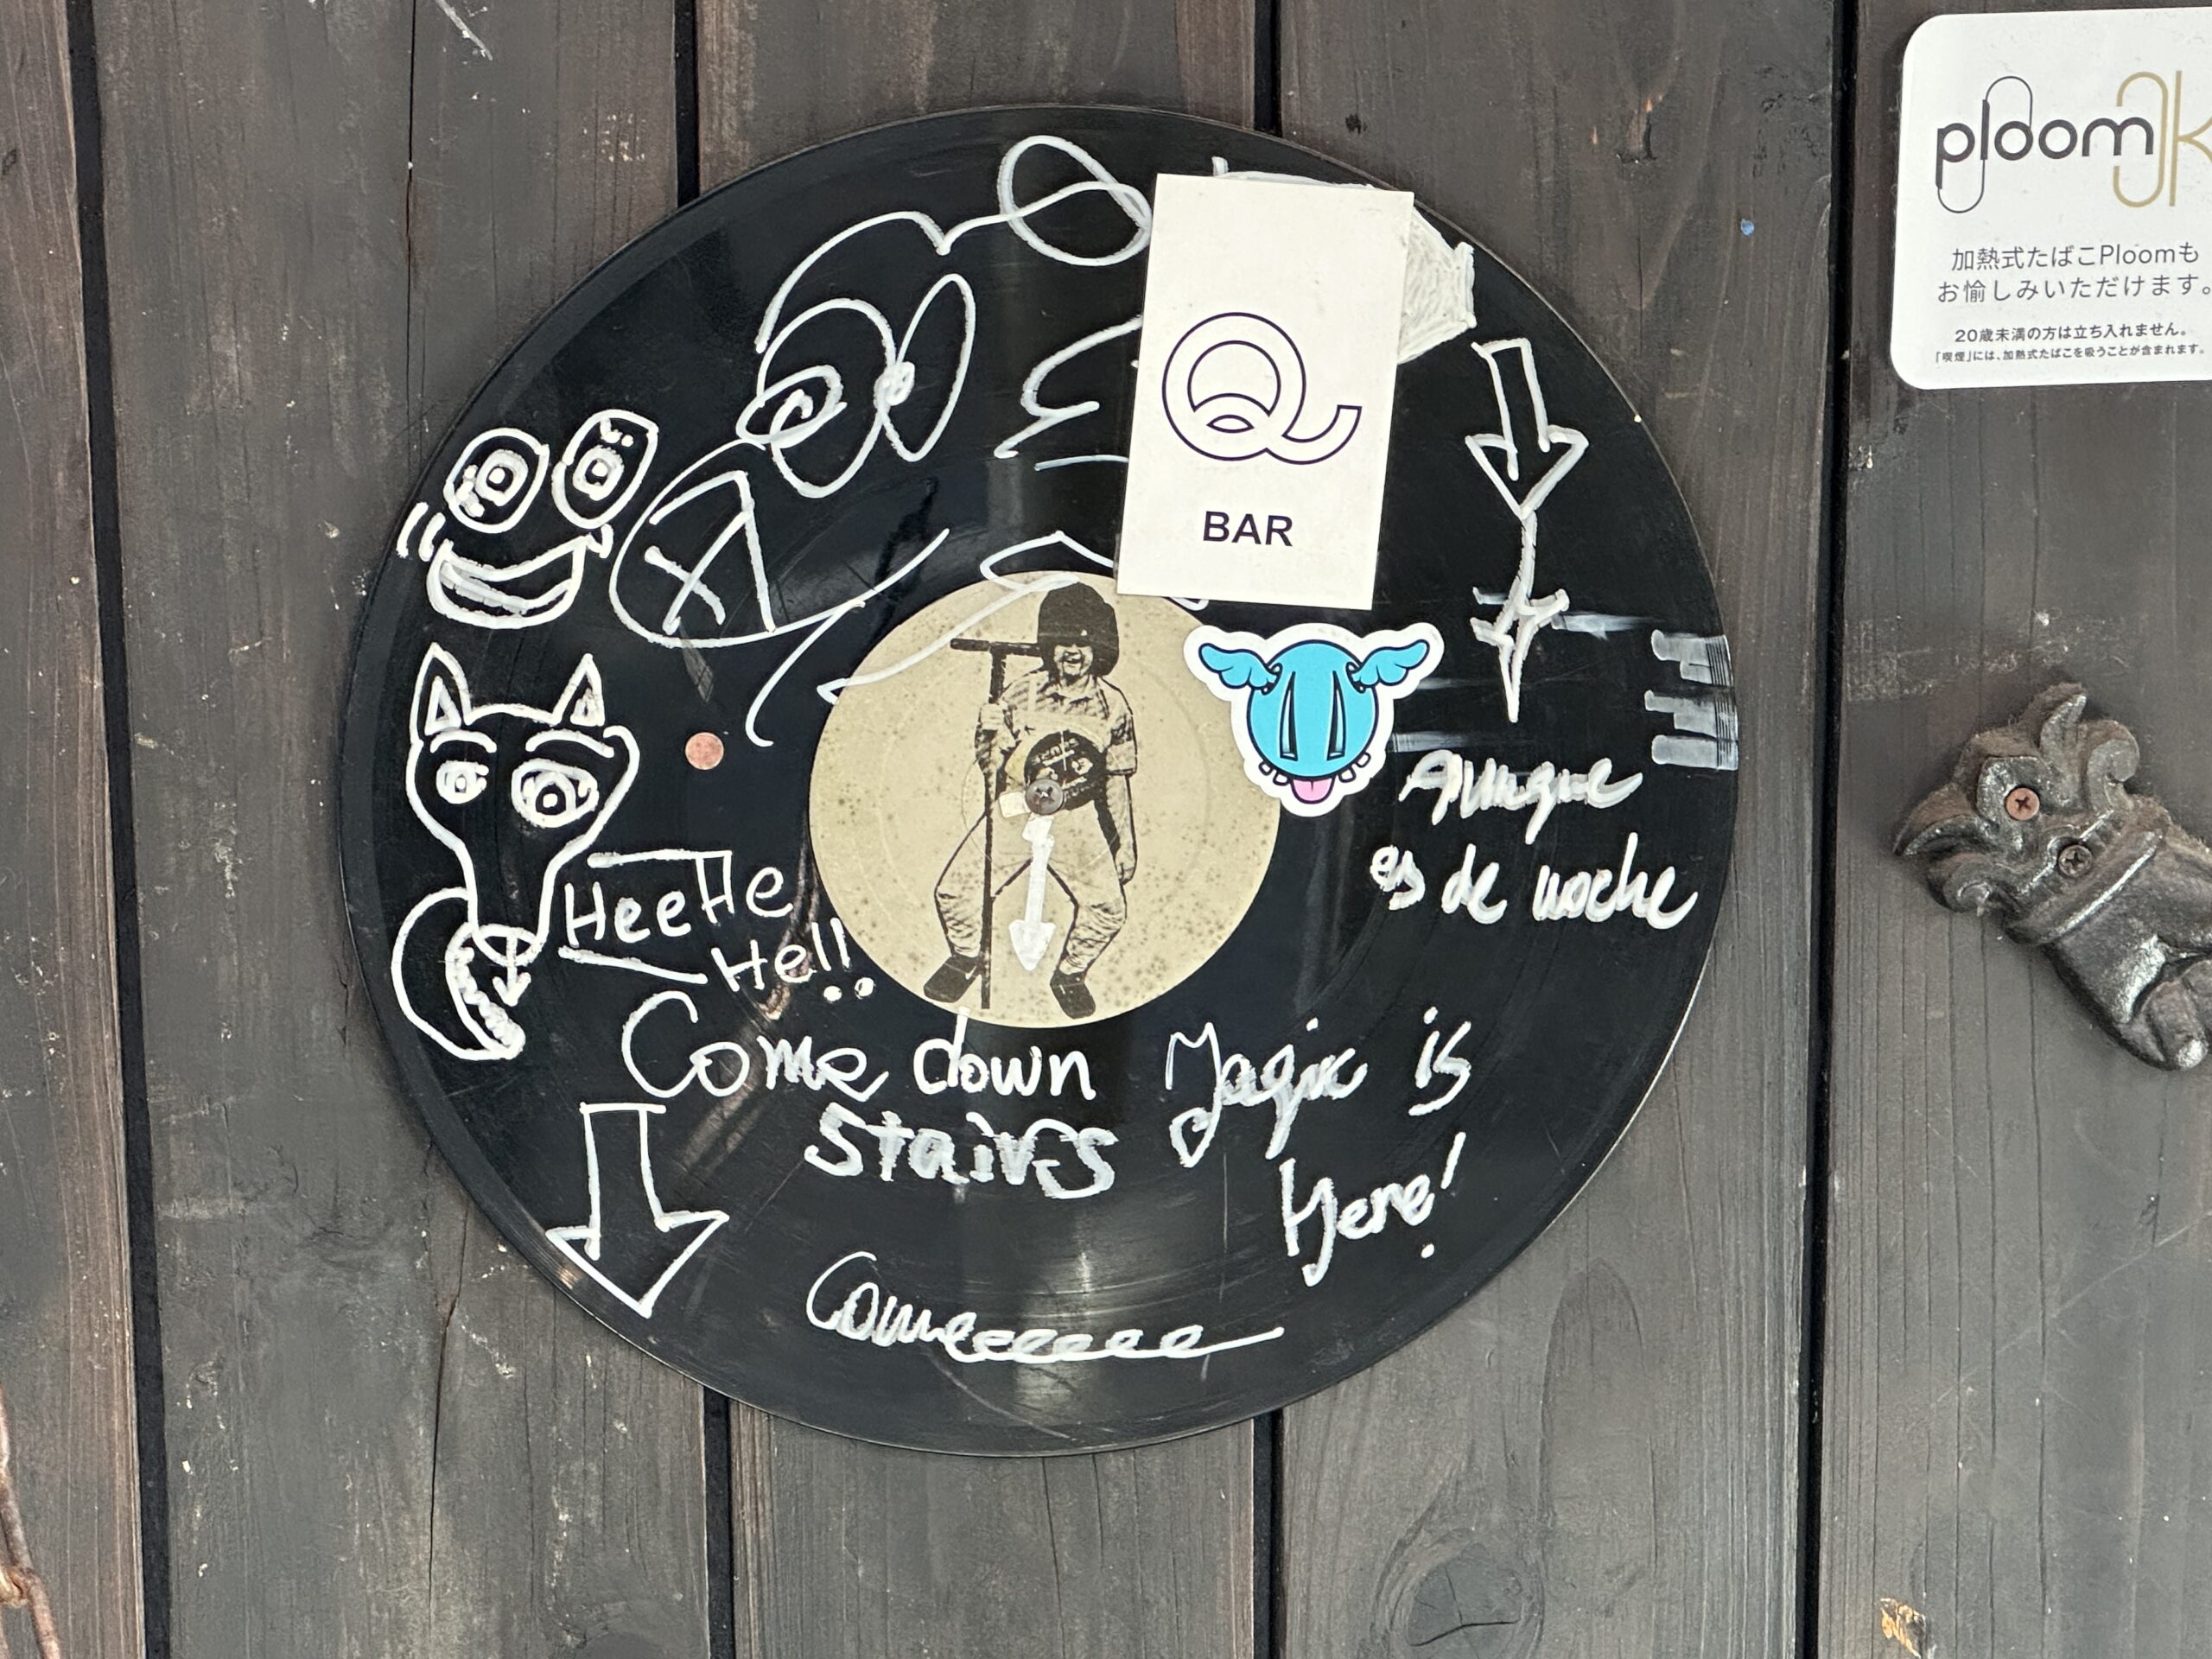 Q
BAR
ploom
加熱式たばこPloomも
お愉しみいただけます。
20歳未満の方は立ち入れません。
「喫煙」には、加熱式たばこを吸うことが含まれます。
Aunque
es de noche
HeeHe
He!!
Come down
Stairs
Magic is
Here!
Comeeeeeee